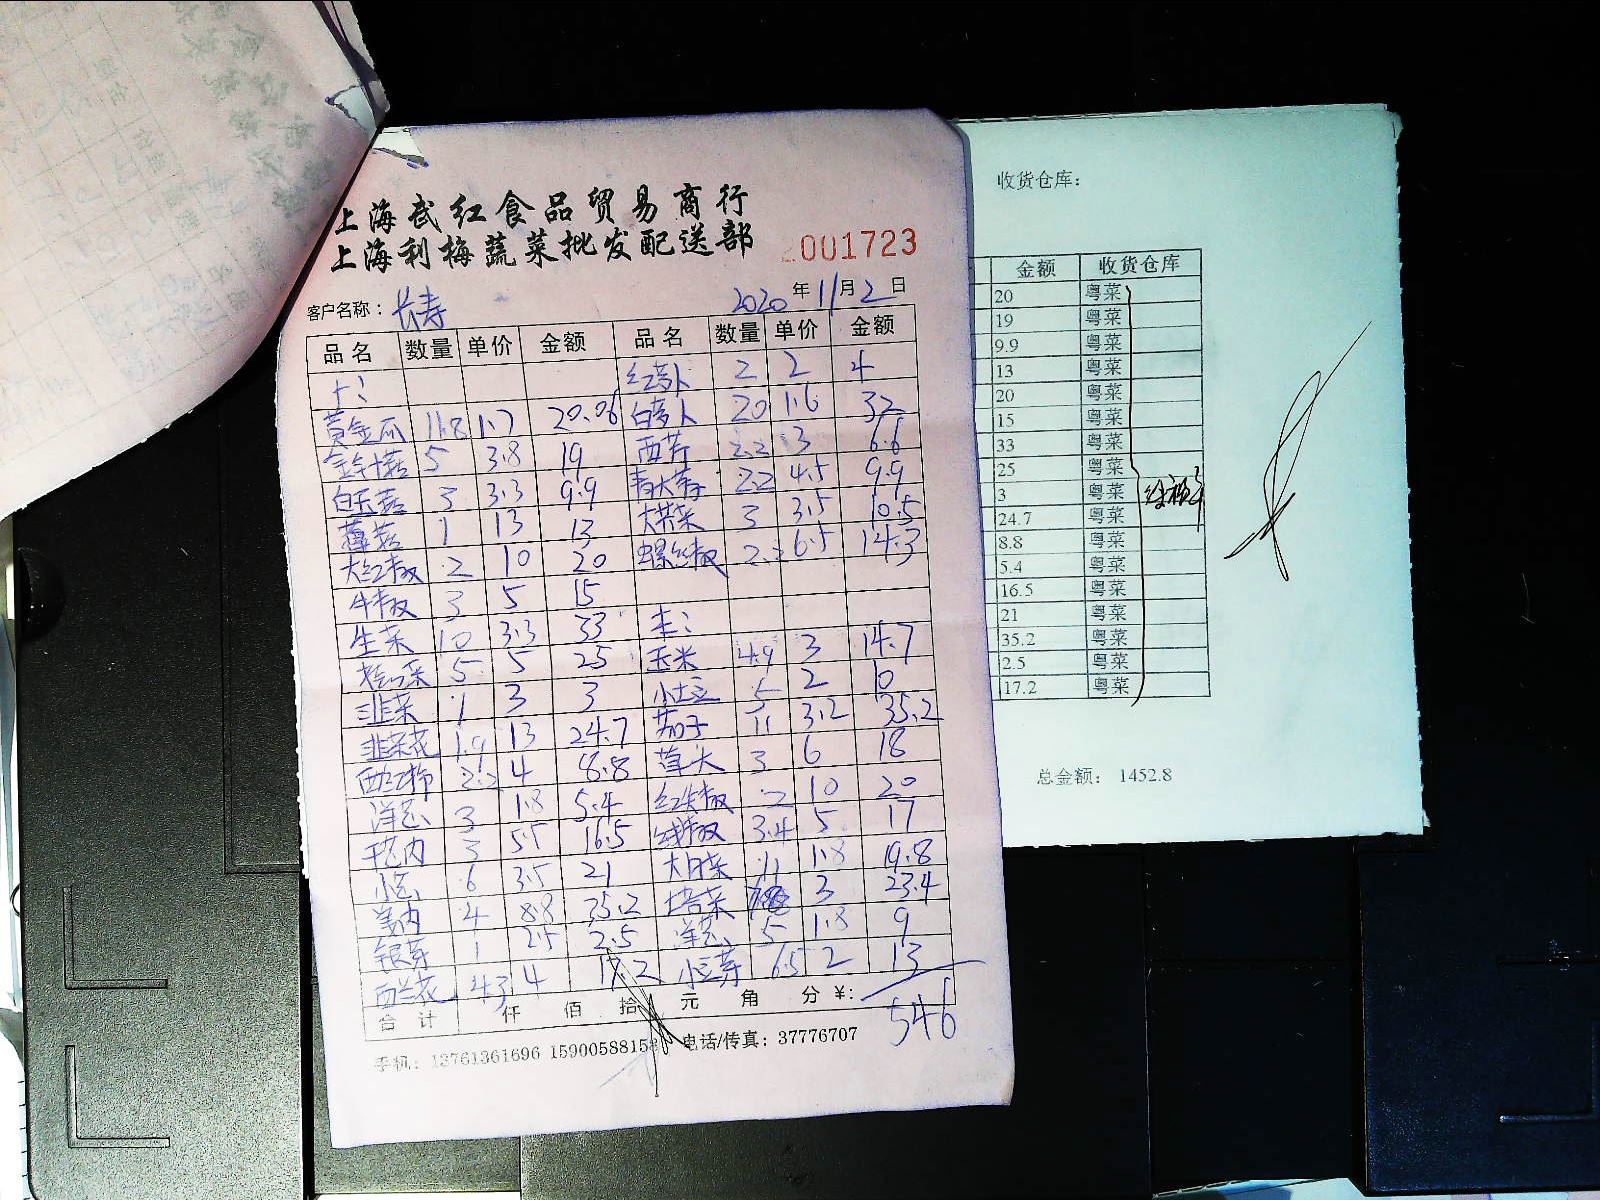 上海武红食品贸易商行
上海利梅蔬菜批发配送部
001723
客户名称：长寿 2020年11月2日
品名 数量 单价 金额 品名 数量 单价 金额
红萝卜 2 2 4
黄金瓜 11.8 1.7 20.06 白萝卜 20 1.6 32
金针菇 5 3.8 19 西芹 2.2 3 6.6
白玉菇 3 3.3 9.9 青大蒜 2.2 4.5 9.9
蘑菇 1 13 13 大洪菜 3 3.5 10.5
大红椒 2 10 20 螺丝椒 2.2 6.5 14.3
牛椒 3 5 15
生菜 10 3.3 33 本:
5 5 25 玉米 4.9 3 14.7
韭菜 1 3 3 小土豆 5 2 10
韭菜花 1.9 13 24.7 茄子 11 3.2 35.2
西红柿 2.2 4 8.8 草头 3 6 18
洋葱 3 1.8 5.4 红尖椒 2 10 20
干葱肉 3 5.5 16.5 线椒 3.4 5 17
小葱 6 3.5 21 大白菜 11 1.8 19.8
姜肉 4 8.8 35.2 塔菜 3 23.4
银芽 1 2.5 2.5 洋葱 5 1.8 9
西兰花 4.3 4 17.2 小豆芽 6.5 2 13
合计 仟 佰 拾 元 角 分 ¥:
546
手机：13761361696 15900588158 电话/传真：37776707
收货仓库：
金额 收货仓库
20 粤菜
19 粤菜
9.9 粤菜
13 粤菜
20 粤菜
15 粤菜
33 粤菜
25 粤菜
3 粤菜
24.7 粤菜
8.8 粤菜
5.4 粤菜
16.5 粤菜
21 粤菜
35.2 粤菜
2.5 粤菜
17.2 粤菜
总金额： 1452.8